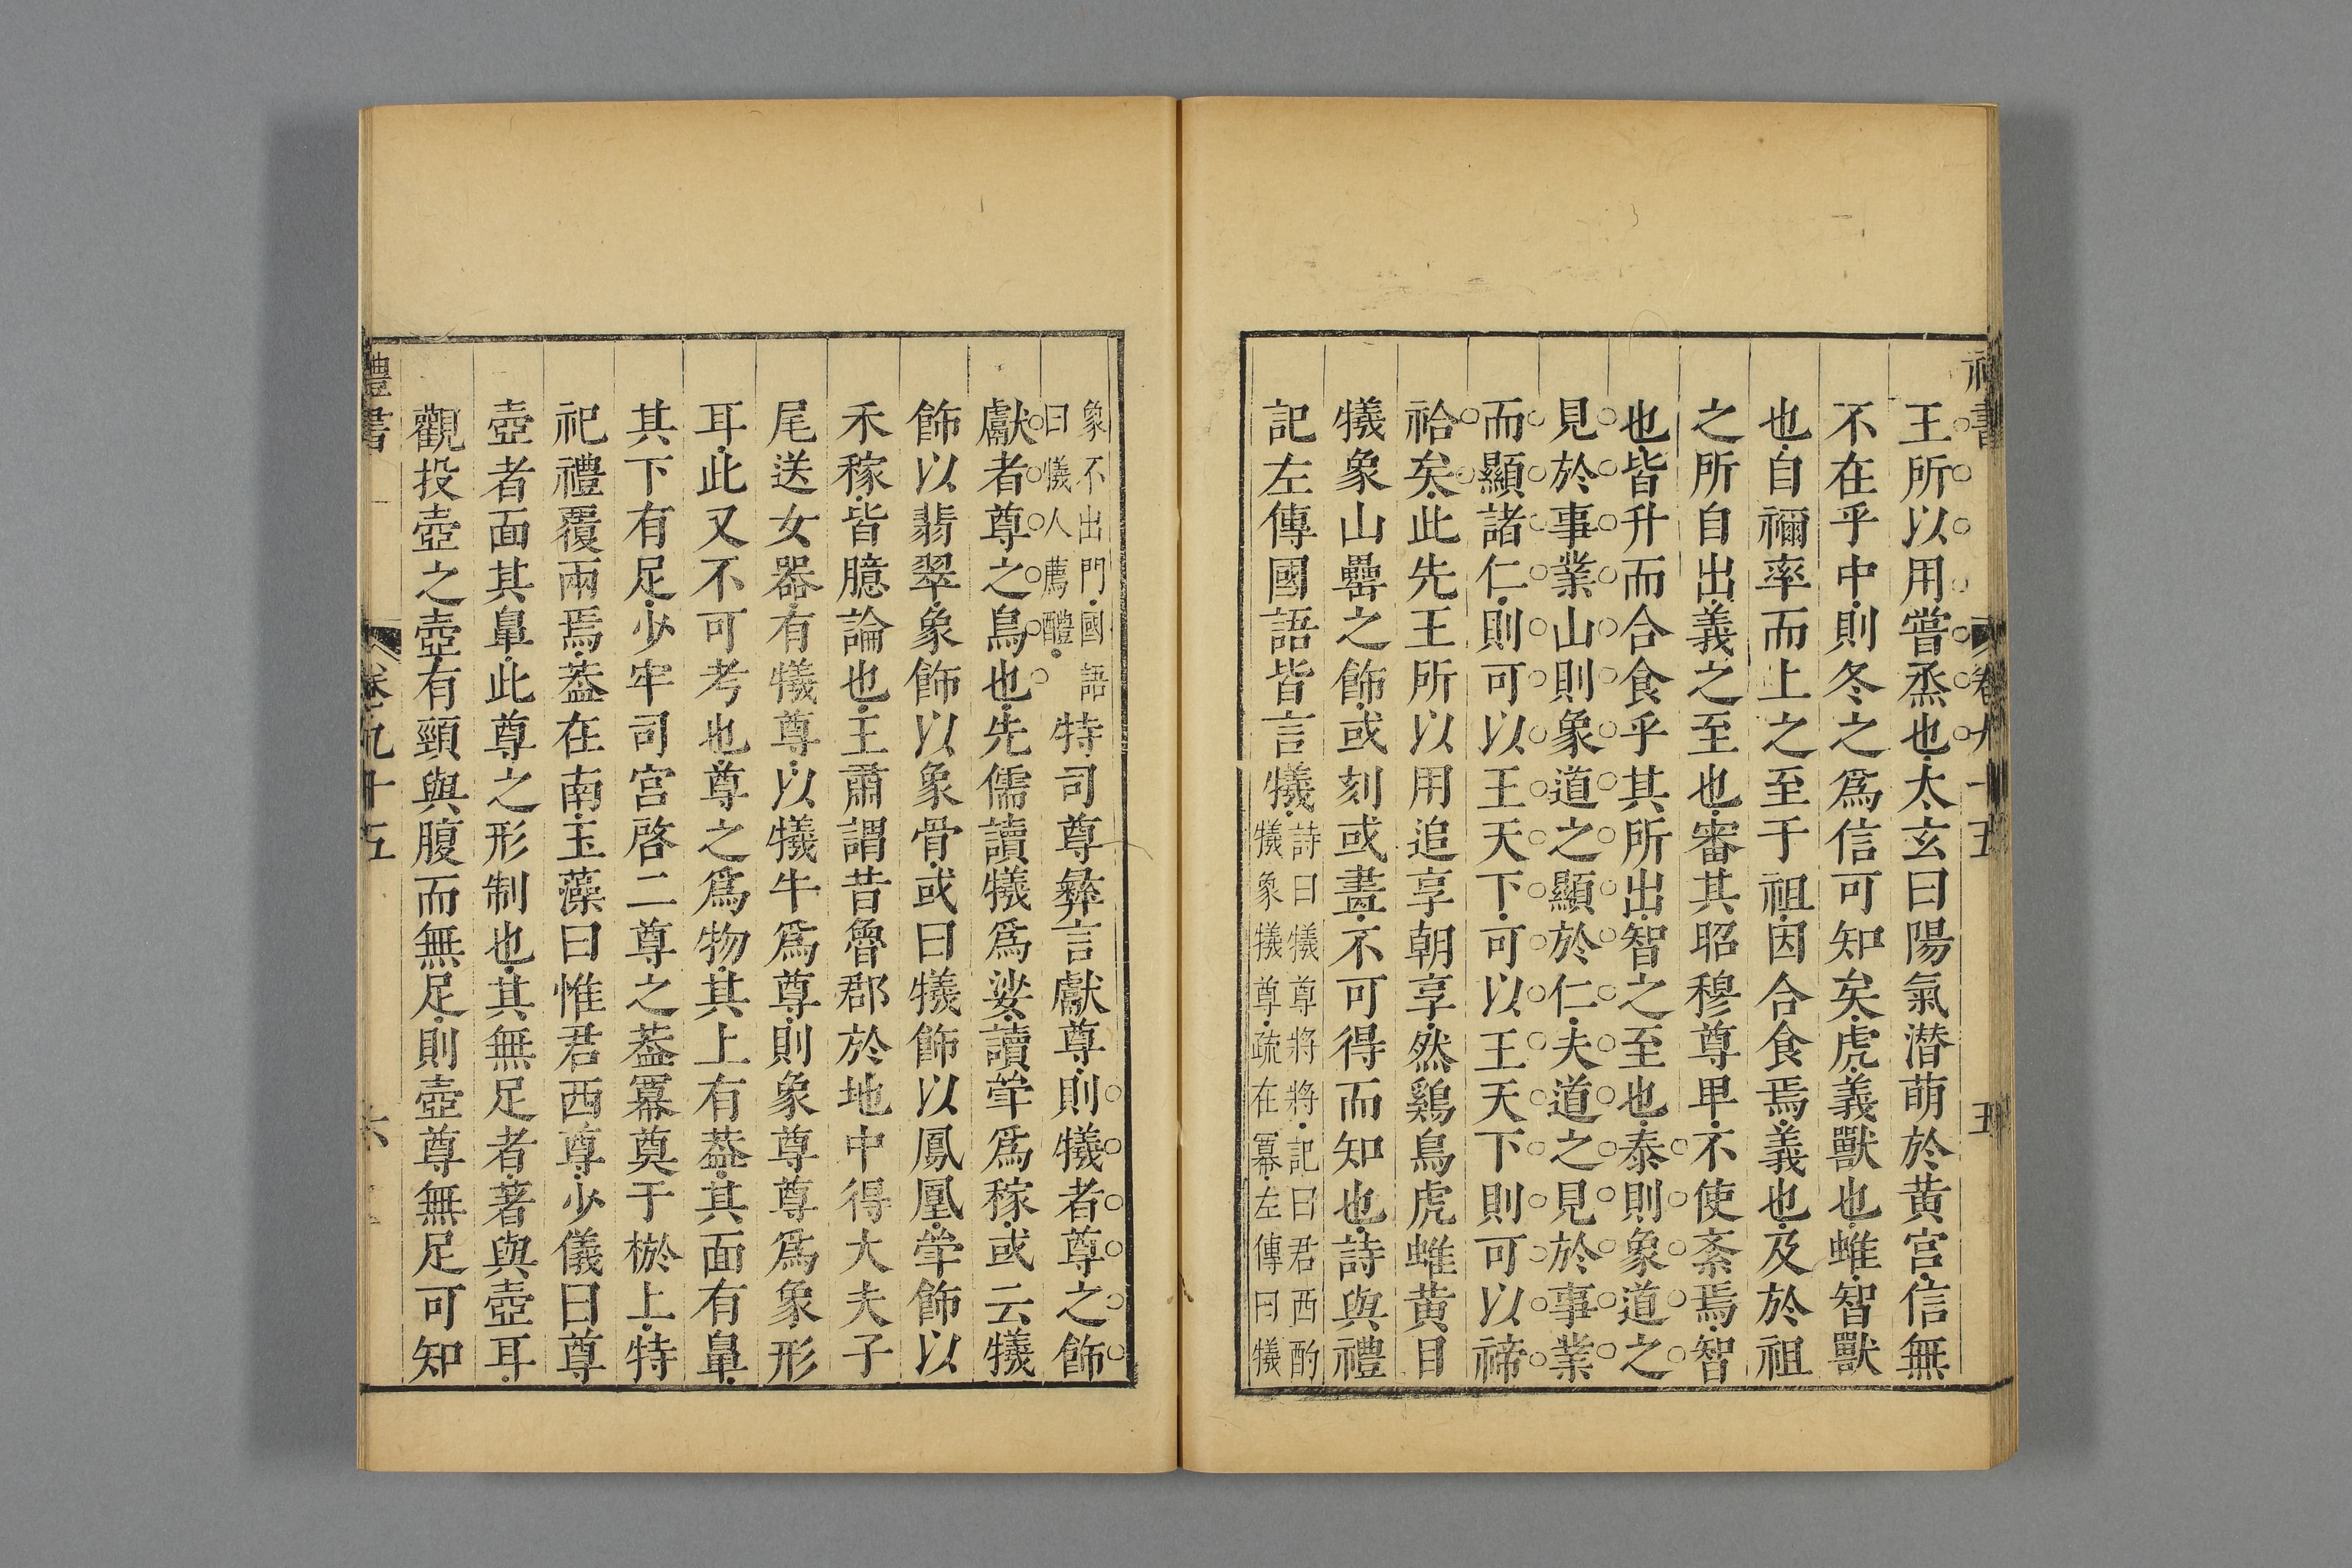 禮書 卷九十五 五
王所以用嘗烝也太玄曰陽氣潜萌於黄宫信無
不在乎中則冬之爲信可知矣虎義獸也蜼智獸
也自禰率而上之至于祖因合食焉義也及於祖
之所自出義之至也審其昭穆尊卑不使紊焉智
也皆升而合食乎其所出智之至也泰則象道之
見於事業山則象道之顯於仁夫道之見於事業
而顯諸仁則可以王天下可以王天下則可以禘
祫矣此先王所以用追享朝享然鷄鳥虎蜼黄目
犧象山罍之飾或刻或畫不可得而知也詩與禮
記左傳國語皆言犧詩曰犧尊將將記曰君西酌
犧象犧尊疏在冪左傳曰犧
象不出門國語
曰犧人薦醴特司尊彝言獻尊則犧者尊之飾
獻者尊之鳥也先儒讀犧爲娑讀斝爲稼或云犧
飾以翡翠象飾以象骨或曰犧飾以鳳凰斝飾以
禾稼皆臆論也王肅謂昔魯郡於地中得大夫子
尾送女器有犧尊以犧牛爲尊則象尊尊爲象形
耳此又不可考也尊之爲物其上有葢其面有鼻
其下有足少牢司宫啓二尊之葢冪奠于棜上特
祀禮覆兩焉葢在南玉藻曰惟君西尊少儀曰尊
壺者面其鼻此尊之形制也其無足者著與壺耳
觀投壺之壺有頸與腹而無足則壺尊無足可知
禮書 卷九十五 六